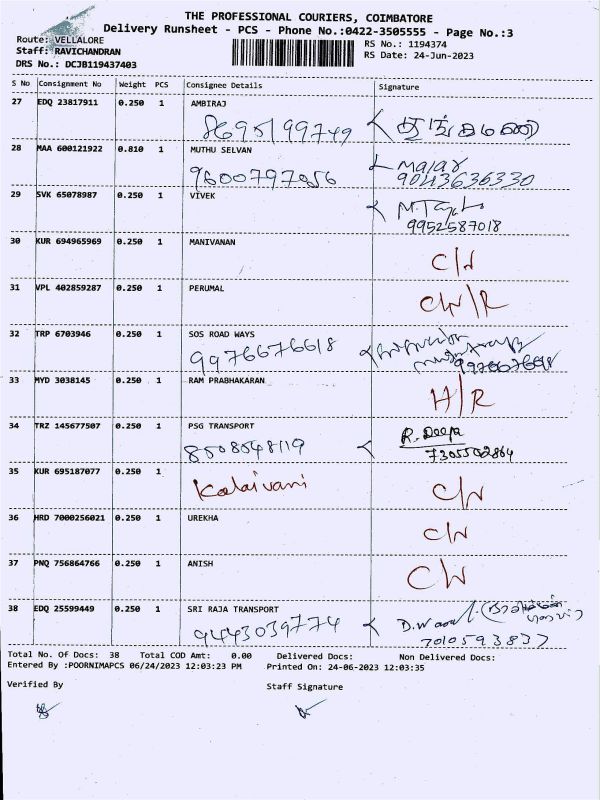 THE PROFESSIONAL COURIERS, COIMBATORE
Delivery Runsheet - PCS - Phone No.:0422-3505555 - Page No.:3
Route: VELLALORE
RS No.: 1194374
Staff: RAVICHANDRAN
RS Date: 24-Jun-2023
DRS No.: DCJB119437403
S No Consignment No Weight PCS Consignee Details Signature
27 EDQ 23817911 0.250 1 AMBIRAJ
8695199749
28 MAA 600121922 0.810 1 MUTHU SELVAN
9600797056 Malar
9043636330
29 SVK 65078987 0.250 1 VIVEK
9952587018
30 KUR 694965969 0.250 1 MANIVANAN
C/N
31 VPL 402859287 0.250 1 PERUMAL
CW/R
32 TRP 6703946 0.250 1 SOS ROAD WAYS
9976676618
33 MYD 3038145 0.250 1 RAM PRABHAKARAN
H/R
34 TRZ 145677507 0.250 1 PSG TRANSPORT
8508548119 R. Deepa
7305502864
35 KUR 695187077 0.250 1
Kalaivani C/N
36 HRD 7000256021 0.250 1 UREKHA
C/N
37 PNQ 756864766 0.250 1 ANISH
C/N
38 EDQ 25599449 0.250 1 SRI RAJA TRANSPORT
9443039774
7010593837
Total No. Of Docs: 38 Total COD Amt: 0.00 Delivered Docs: Non Delivered Docs:
Entered By :POORNIMAPCS 06/24/2023 12:03:23 PM Printed On: 24-06-2023 12:03:35
Verified By Staff Signature